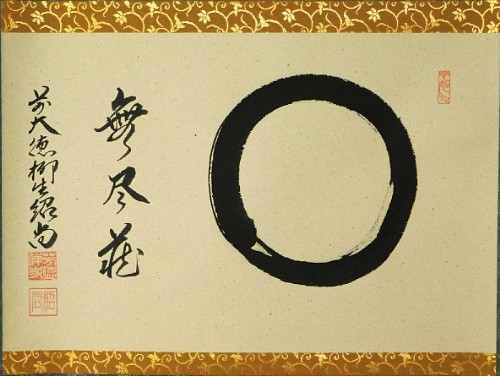 無尽蔵
前大徳柳生紹尚